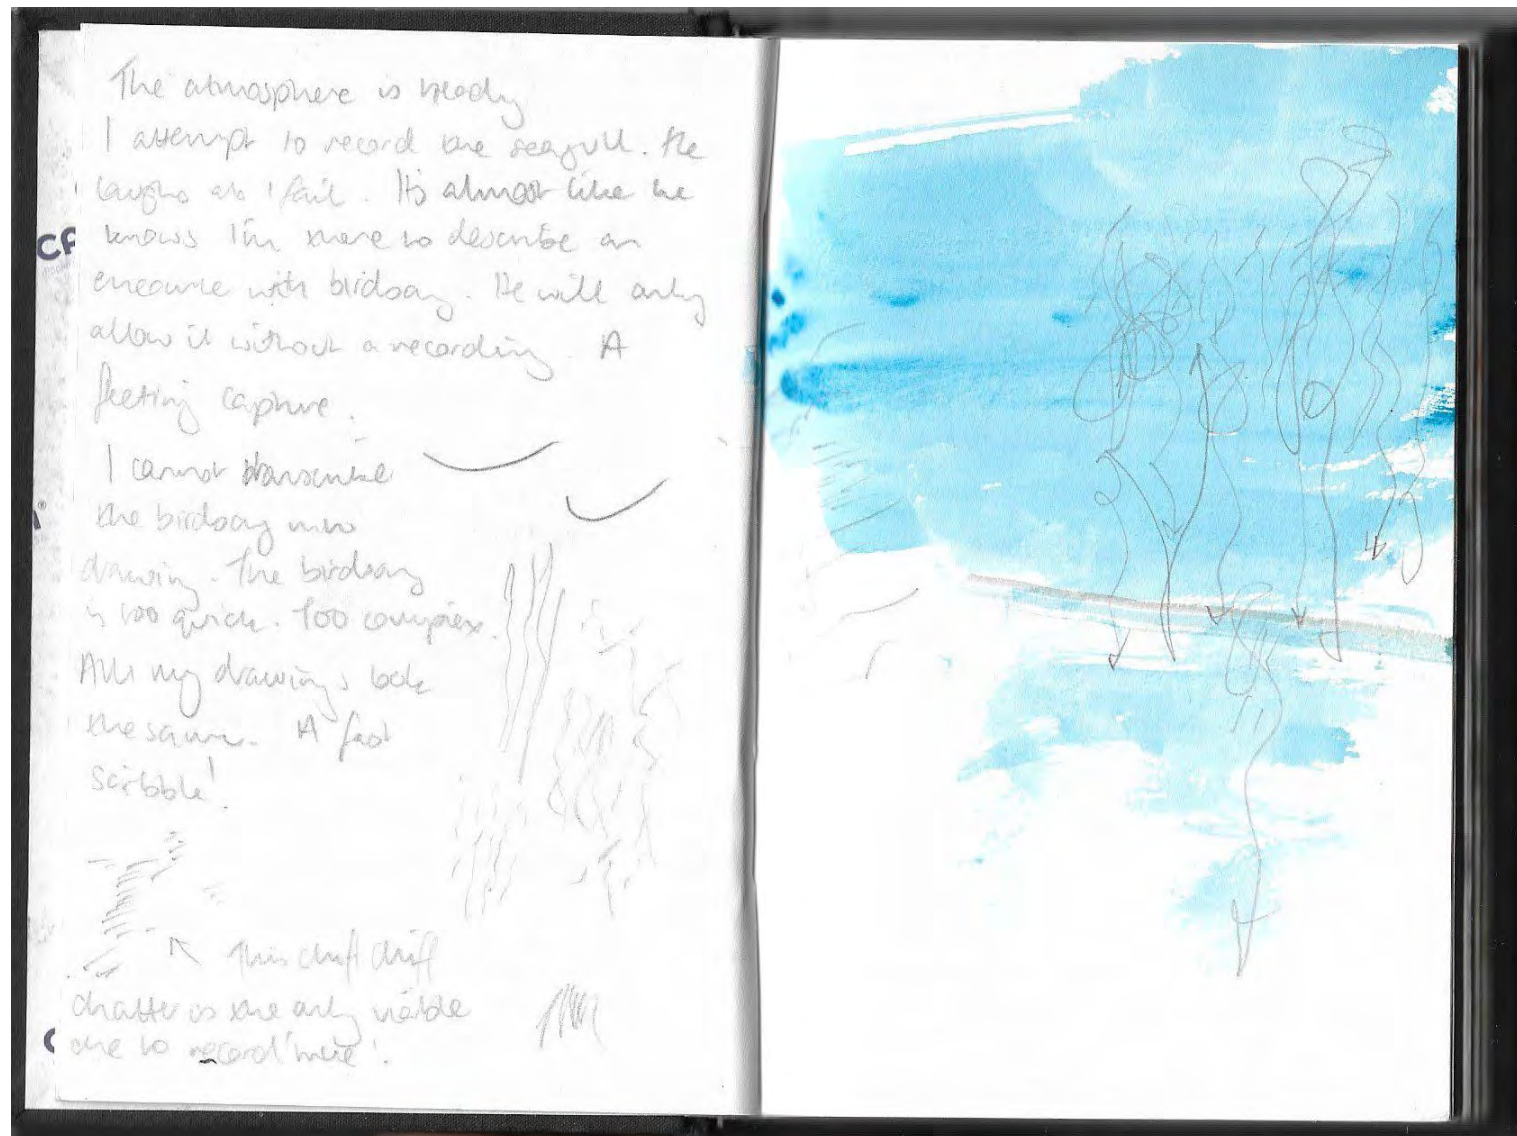 The atmosphere is heady
I attempt to record the seagull. He
laughs as I fail. Its almost like he
knows I'm there to describe an
encounte with birdsong. He will only
allow it without a recording. A
fleeting capture.
I cannot transcribe
the birdsong into
drawing. The birdsong
is too quick. Too complex.
All my drawings look
the same. A fast
scribble!
This chuff chuff
chatter is the only
one to record here!
CF